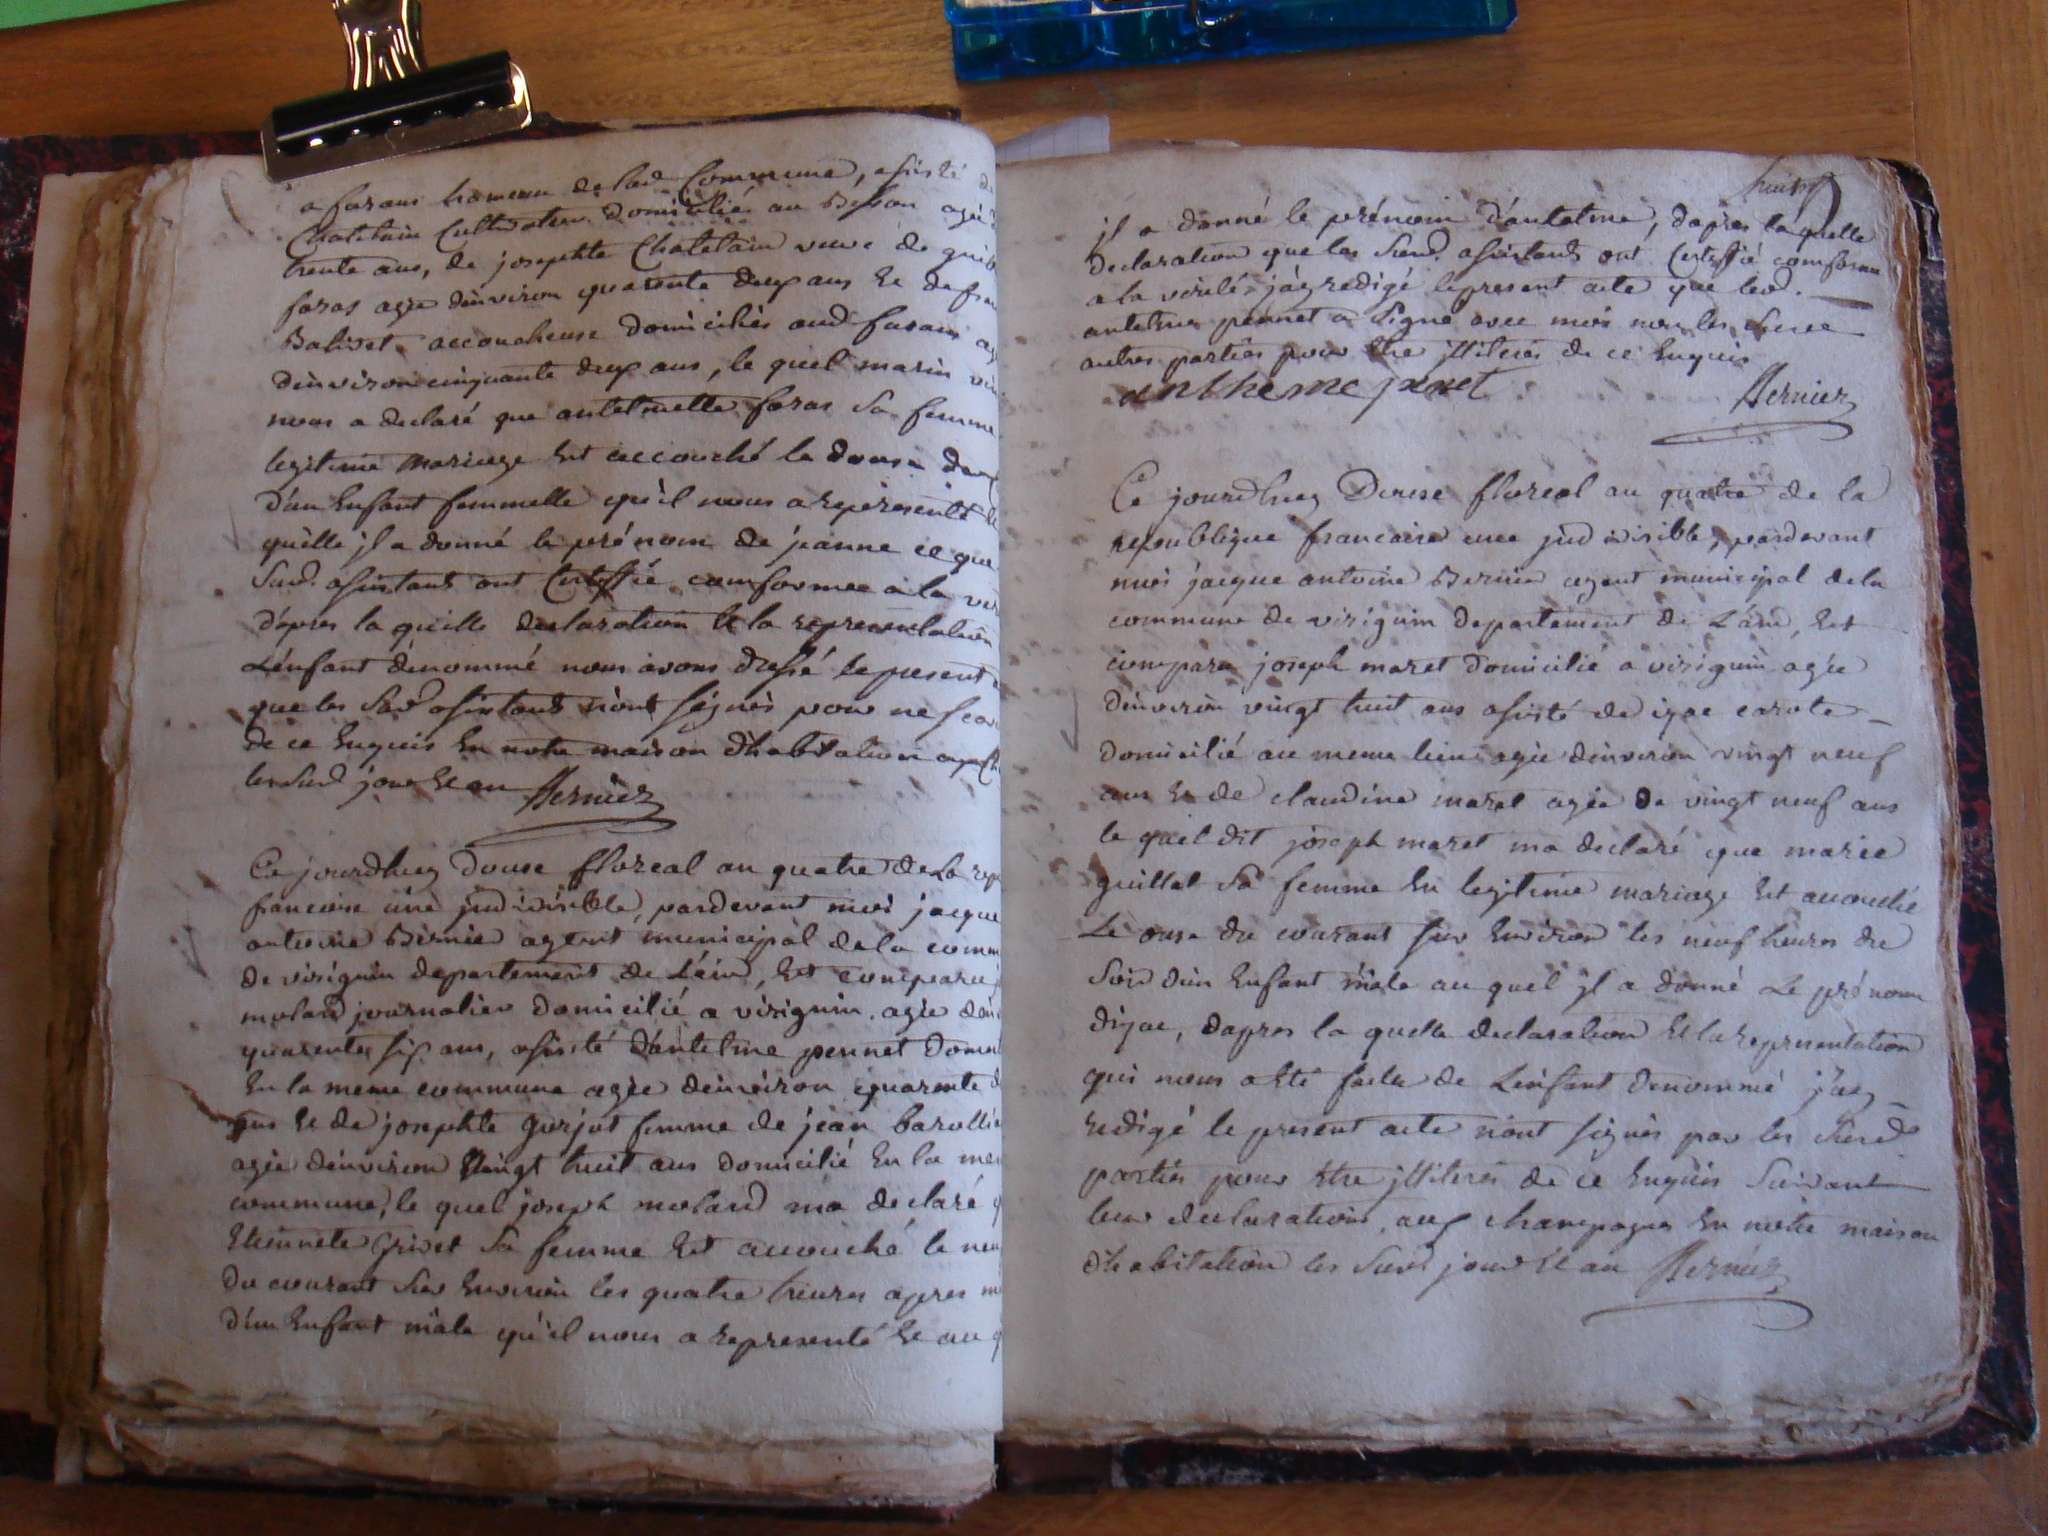 a faram hameau de lad Commune, assisté de
Chatelain Cultivateur domicilié au Besson agé
trente ans, de josephte Chatelain veuve de
faras agée denviron quarente deux ans Et de
Balivet accoucheuse domiciliés aud faram
denviron cinquante deux ans, le quel marin
nous a declaré que antelmette faras Sa femme
legitime mariage Est accouché le douse
d'un Enfant femmelle qu'il nous a representé
quelle jl a donné le prénom de jeanne ce que
Susd. assistants ont Certiffié comformee a la
d'apres la quelle declaration Et la representation
L'énfant dénommé nous avons dressé le present
que les Sud assistants n'ont signés pour ne
de ce Enquis En notre maison d'habitation
les Sud jour Et an Bernier
Ce jourdhuy douse floreal an quatre de La
francoise une jndivisible, pardevant moi jacque
antoine Bernier agent municipal de la
de virignin departement de L'ain, Est comparu
molard journalier domicilié a virignin, agée
quarente six ans, assisté d'antelme pennet
En la meme commune agée denviron quarente
ans Et de josephte gorjut femme de jean
agée denviron Vingt huit ans domicilié En la
commune, le quel joseph molard ma declaré
Etiennete Grivet Sa femme Est accouché le
du courant Sur Environ les quatre heures apres
d'un Enfant mâle qu'il nous a representé Et au
jl a donné le prénom d'antelme, dapres laquelle
declaration que les Susd. assistants ont Certiffié comforme
a la verité j'ay redigé le present acte que led.
antelme pennet a Signé avec moi non les Susd
autres parties pour Etre jlliterés de ce Enquis
anthemc penet Bernier
Ce jourdhuy Douse floreal an quatre de la
republique francaise une jndivisible, pardevant
moi jacque antoine Bernier agent municipal de la
commune de virignin departement de L'ain, Est
comparu joseph maret domicilié a virignin agée
denviron vingt huit ans assisté de izac
domicilié au meme lieu agée denviron vingt neuf
ans Et de claudine maret agée de vingt neuf ans
le quel dit joseph maret ma declaré que marie
guillet Sa femme En legitime mariage Est accouché
Le onse du courant Sur Environ les neuf heures du
Soir d'un Enfant mâle au quel jl a donné Le prénom
dizac, dapres la quelle declaration Et la representation
qui nous a Eté faite de L'énfant denommé j'ay
redigé le present acte n'ont signés par les Susd
parties pour Etre jlliterés de ce Enquis Suivant
leur declaration, aux champagnes En notre maison
d'habitation les Susd jour Et an Bernier